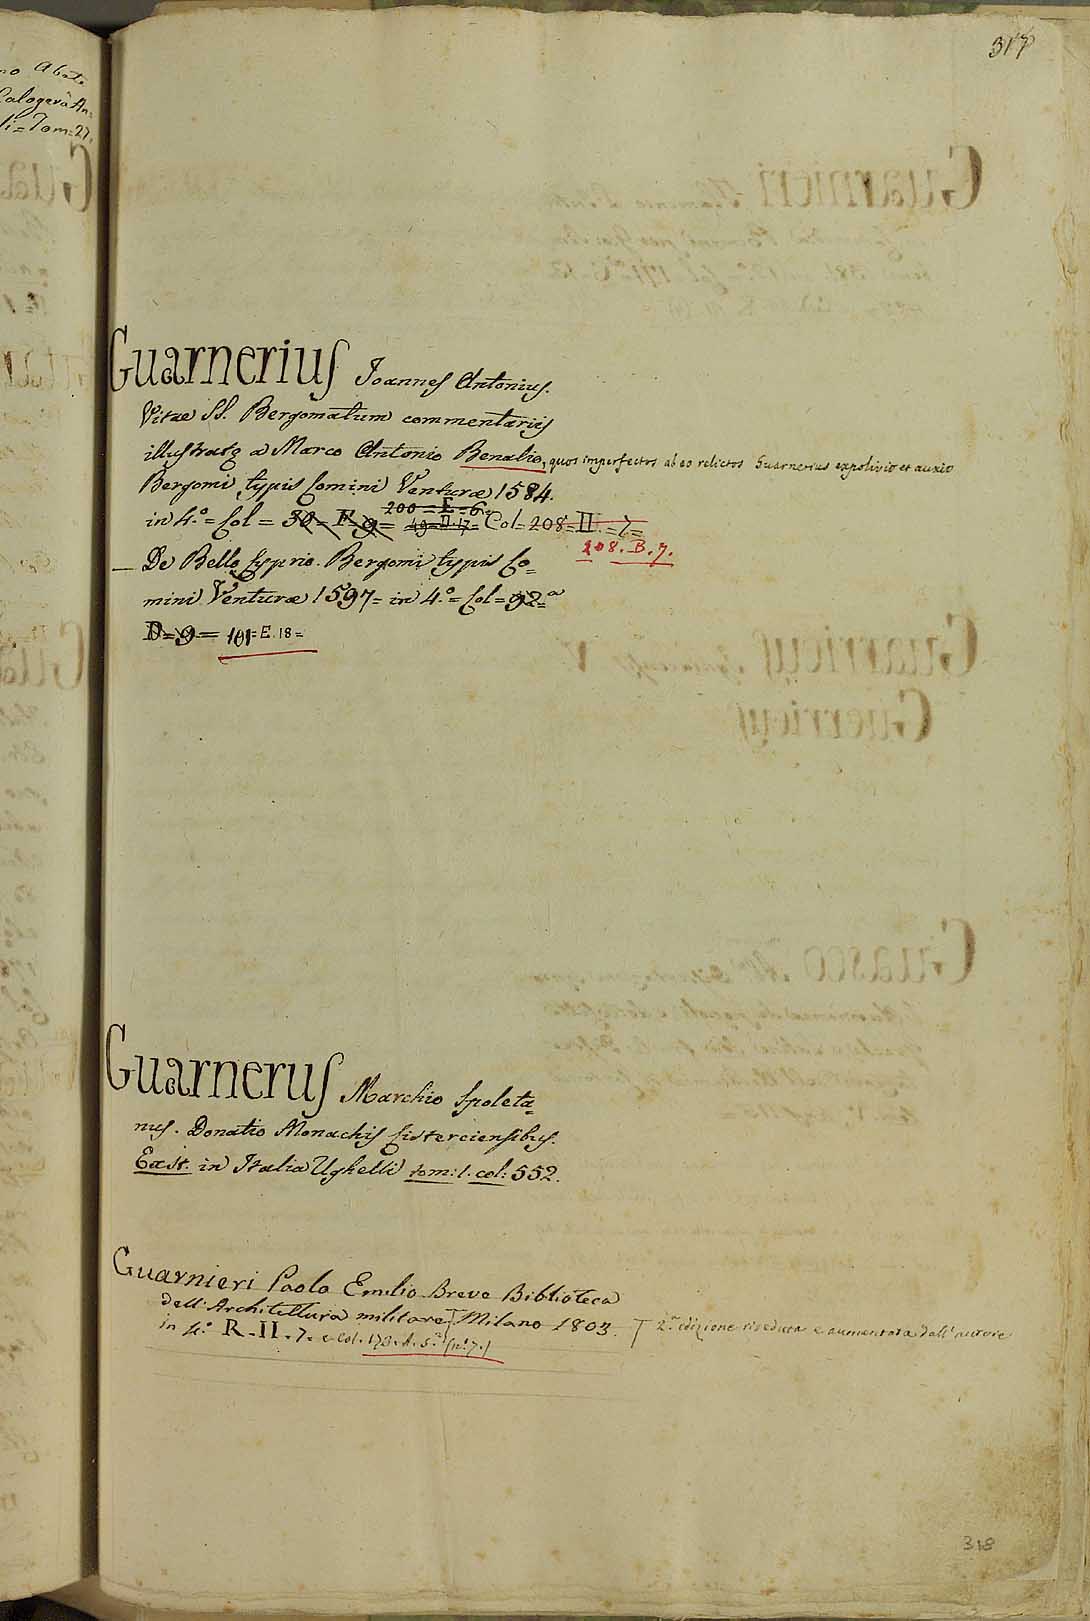 317
no Abate
Calogerà An=
li = Tom = 27.
Guarnerius Joannes Antonius.
Vitae SS. Bergomatum commentariis
illustratę a Marco Antonio Benalio, quos imperfectos ab eo relictos Guarnerius expolivit et auxit
Bergomi typis Comini Venturæ 1584.
200 = E = 6.
in 4.º = Col = 30 = F = 9 = 49 = D. 17 = Col = 208 = II = 7 =
208. B. 7.
— De Bello Cyprio. Bergomi typis Co=
mini Venturæ 1597 = in 4.º = Col = 92 =
D = 9 = 101 = E. 18 =
Guarnerus Marchio Spoleta=
nus. Donatio Monachis Cisterciensibus.
Exst. in Italia Ughelli tom: 1. col: 552.
Guarnieri Paolo Emilio Breve Biblioteca
dell'Architettura militare Milano 1803. 2.ª edizione riveduta e aumentata dall'autore
in 4.º R. II. 7. e col. 173. A. 5. (nº 7.)
318